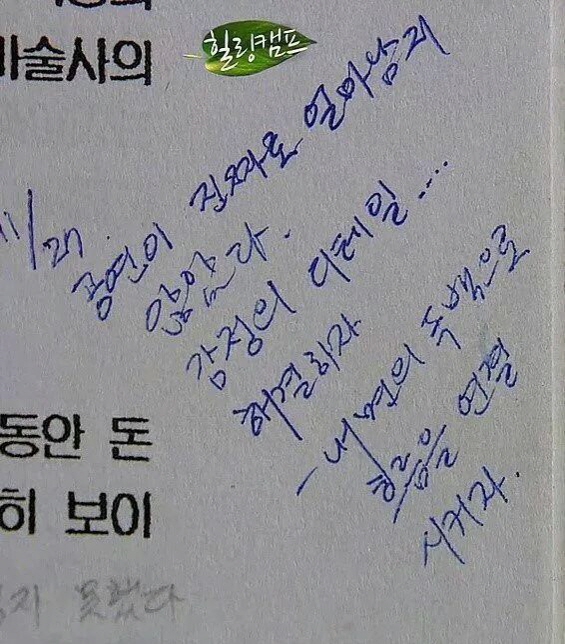 미술사의
힐링캠프
11/27. 공연이 진짜로 얼마 남지
않았다.
감정의 디테일....
해결하자
- 내면의 독백으로
흐름을 연결
시키자.
동안 돈
히 보이
지 못했다